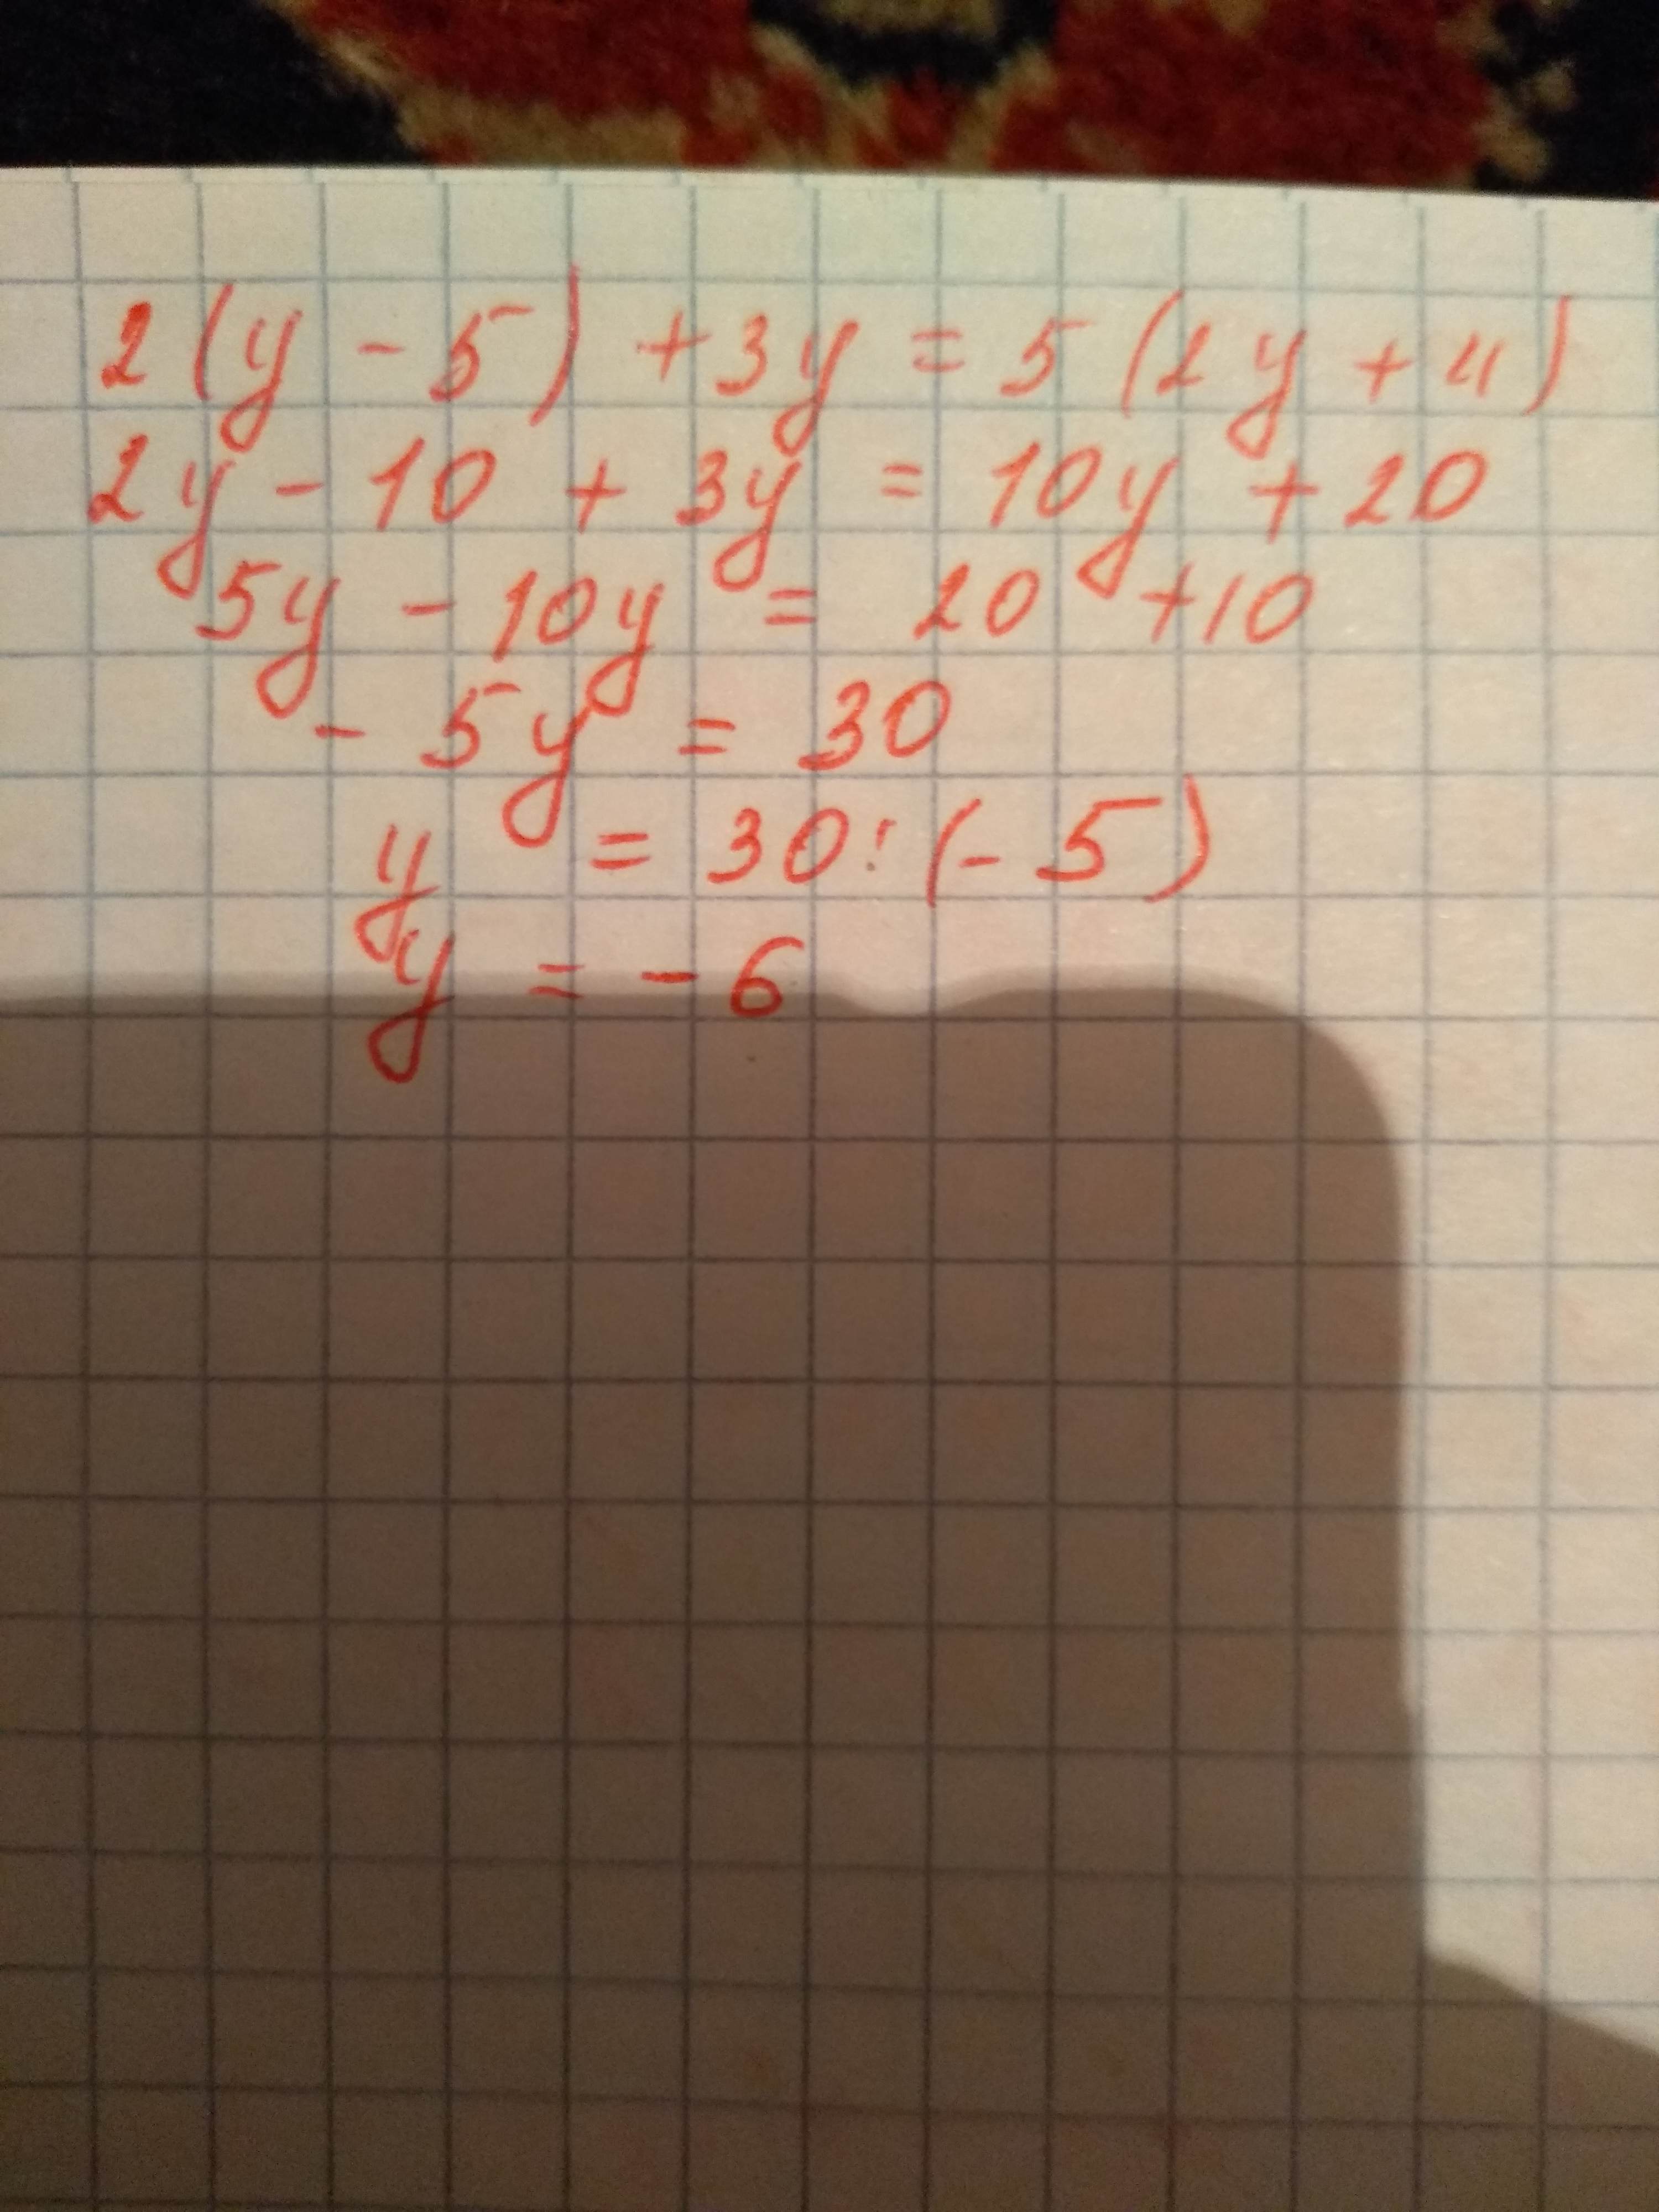 2(y - 5) + 3y = 5(2y + 4)
2y - 10 + 3y = 10y + 20
5y - 10y = 20 + 10
- 5y = 30
y = 30 : (- 5)
y = - 6